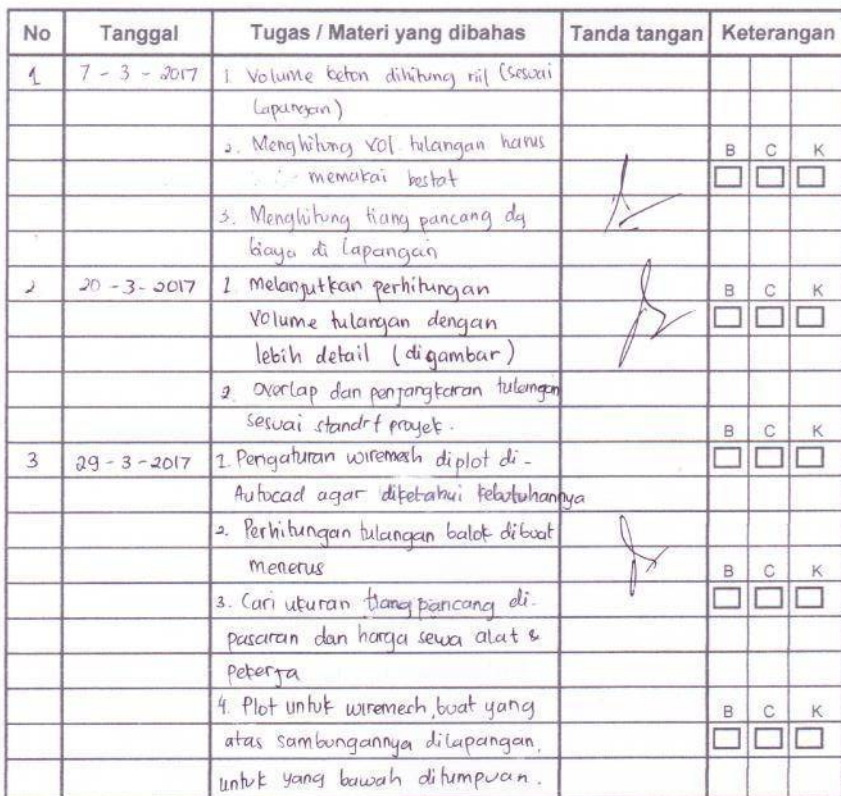 No Tanggal Tugas / Materi yang dibahas Tanda tangan Keterangan
1 7 - 3 - 2017 1. Volume beton dihitung riil (sesuai
Lapangan)
2. Menghitung vol. tulangan harus B C K
memakai bestat
3. Menghitung tiang pancang dg
biaya di Lapangan
2 20 - 3 - 2017 1 Melanjutkan perhitungan B C K
volume tulangan dengan
lebih detail (digambar)
2. Overlap dan penjangkaran tulangan
sesuai standrt proyek. B C K
3 29 - 3 - 2017 1. Pengaturan wiremesh diplot di-
Autocad agar diketahui kebutuhannya
2. Perhitungan tulangan balok dibuat
menerus B C K
3. Cari ukuran tiang pancang di-
pasaran dan harga sewa alat &
Pekerja
4. Plot untuk wiremech, buat yang B C K
atas sambungannya dilapangan,
untuk yang bawah ditumpuan.